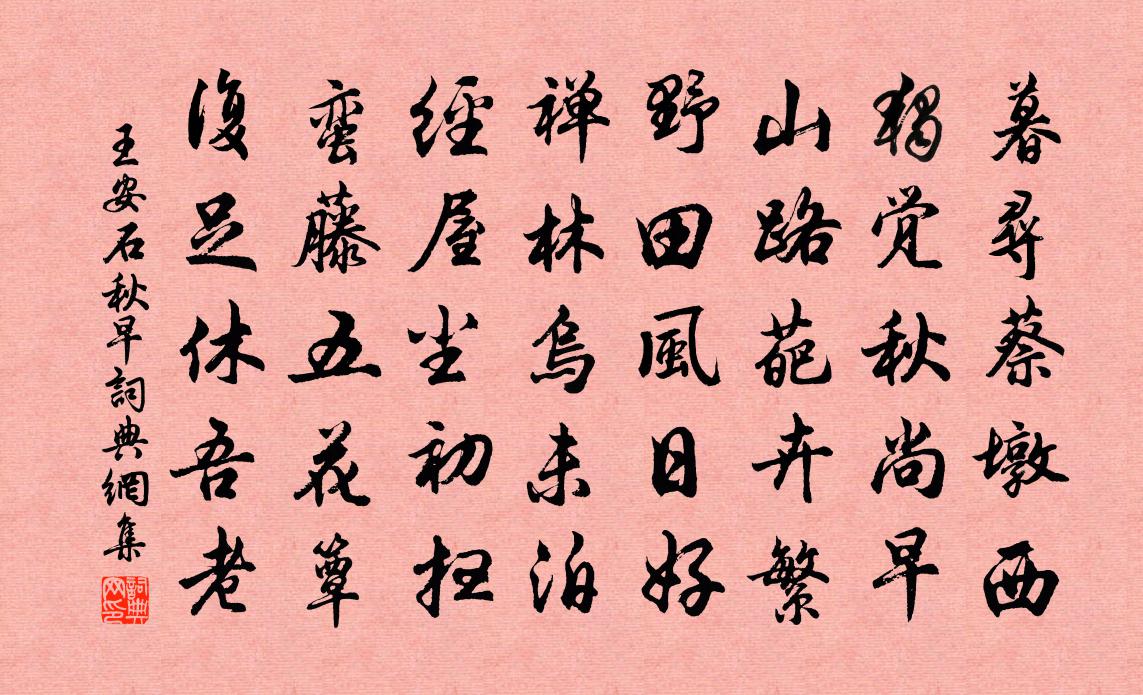 暮尋蔡墩西
獨覚秋尚早
山路葩卉繁
野田風日好
禅林烏未泊
經屋尘初扫
蛮藤五花簟
復足休吾老
王安石秋早詞典網集
詞典网印